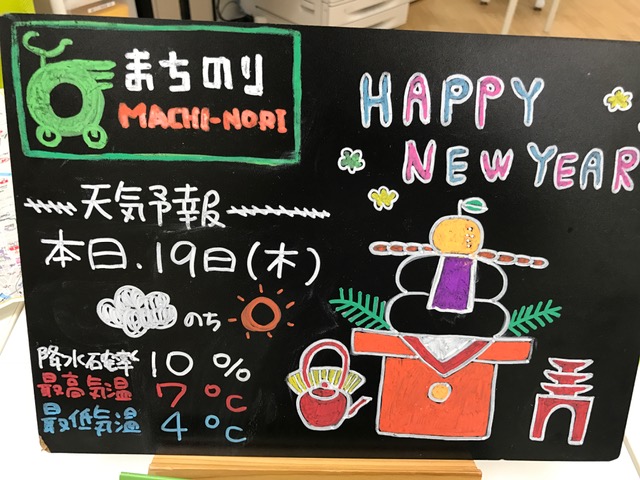 まちのり
MACHI-NORI
HAPPY
NEW YEAR
天気予報
本日.19日(木)
のち
降水確率 10 %
最高気温 7 °C
最低気温 4 °C